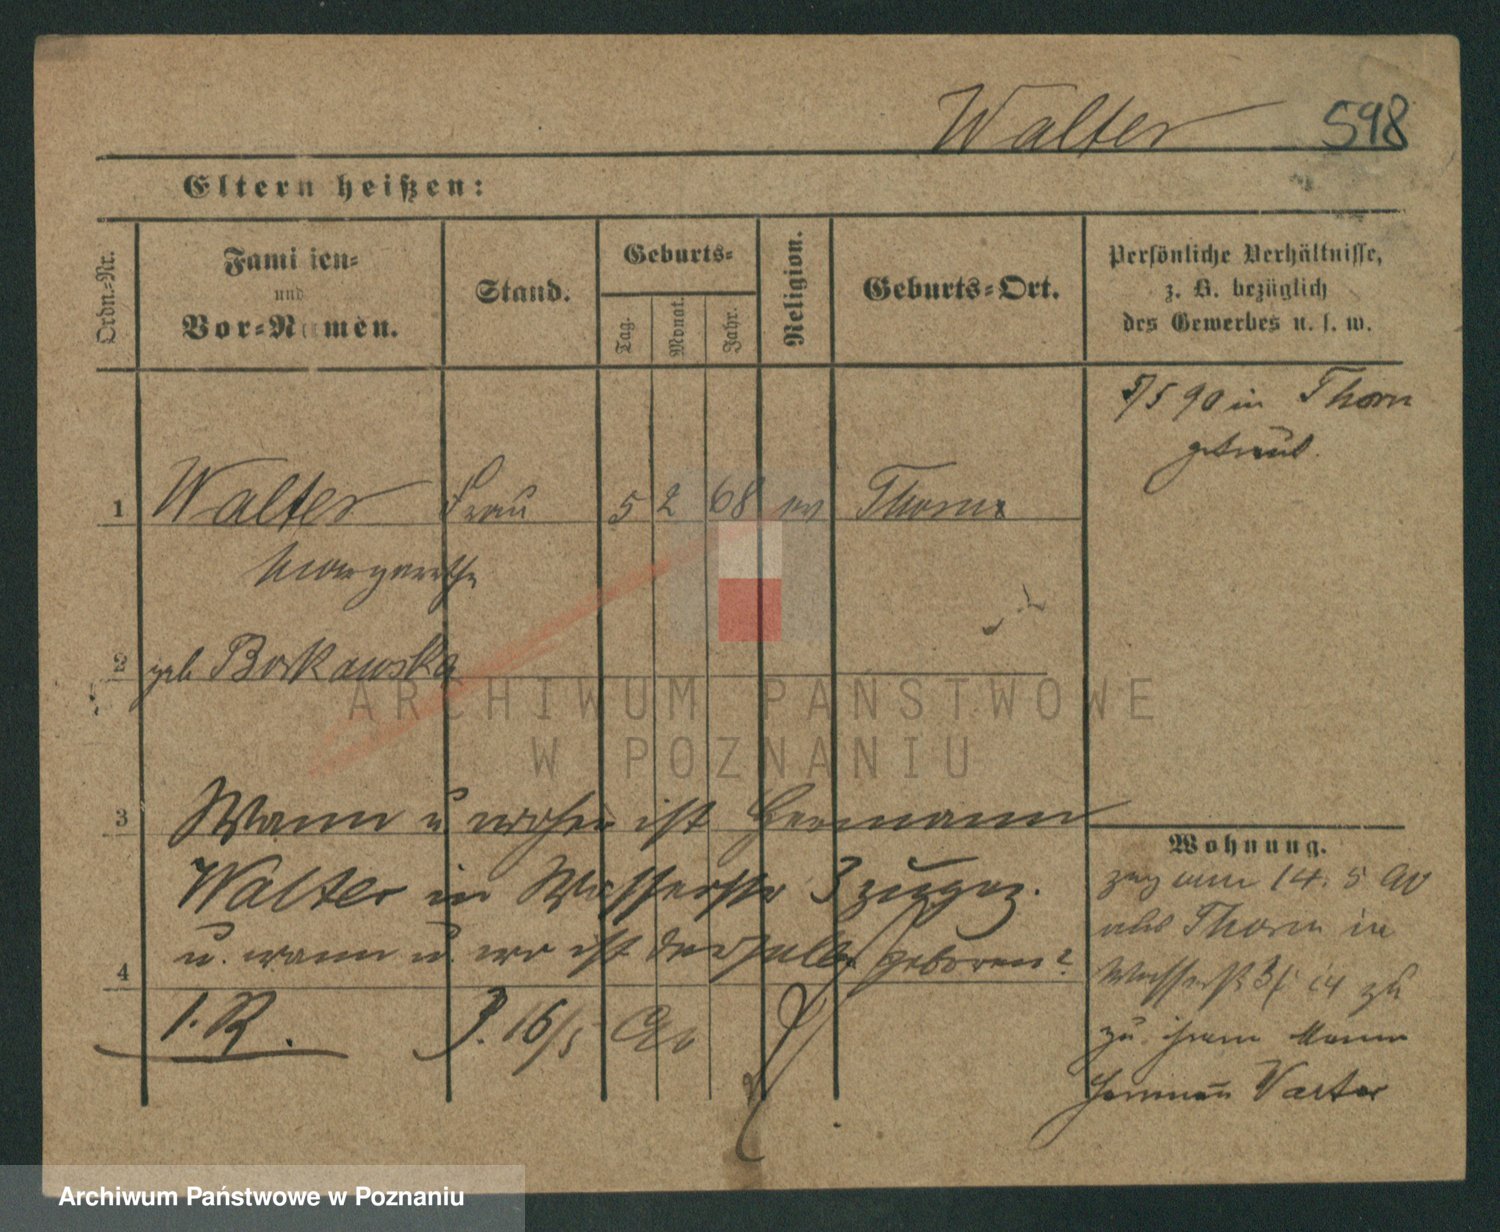 Walter 598
Eltern heißen:
Ordn.-Nr.
Familien-
und
Vor-Namen.
Stand.
Geburts-
Tag.
Monat.
Jahr.
Religion.
Geburts-Ort.
Persönliche Verhältnisse,
z. B. bezüglich
des Gewerbes u. s. w.
5/5 90 in Thorn
getraut.
1 Walter Frau 5 2 68 ev Thorn
Margarethe
2 geb Borkowska
ARCHIWUM PAŃSTWOWE
W POZNANIU
3 Wann u woher ist Hermann
Walter in Wasserstr 3 zugez.
u. wann u. wo ist derselbe geboren?
4
I. R. 3. 16/5 90
Wohnung.
zog am 14. 5 90
aus Thorn in
Wasserstr 3/
zu ihrem Mann
Hermann Walter
Archiwum Państwowe w Poznaniu